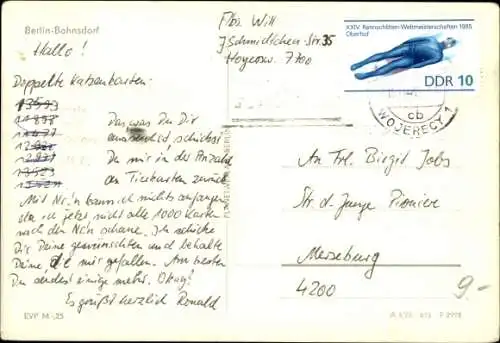 Berlin-Bohnsdorf
Hallo!
Doppelte Katzenkarten:
13593
11898
Das was Du Dir
aussuchst, schickst
Du mir in der Anzahl
an Tierkarten zurück
Mit Nr.'n kann ich nichts anfangen
wenn ich jetzt nicht alle 1000 Karten
nach den Nr'n schaue. Ich schicke
Dir Deine gewünschten und behalte
Deine, die mir gefallen. Am besten
Du sendest einige mehr. Okay?
Es grüßt herzlich Ronald
EVP M -,25
J.Schmidtchen-Str. 35
Hoyersw. 7700
XXIV. Rennschlitten-Weltmeisterschaften 1985
Oberhof
DDR 10
cb
WOJERECY 1
An Frl. Birgit Jobs
Str. d. Junge Pioniere
Merseburg
4200
9.-